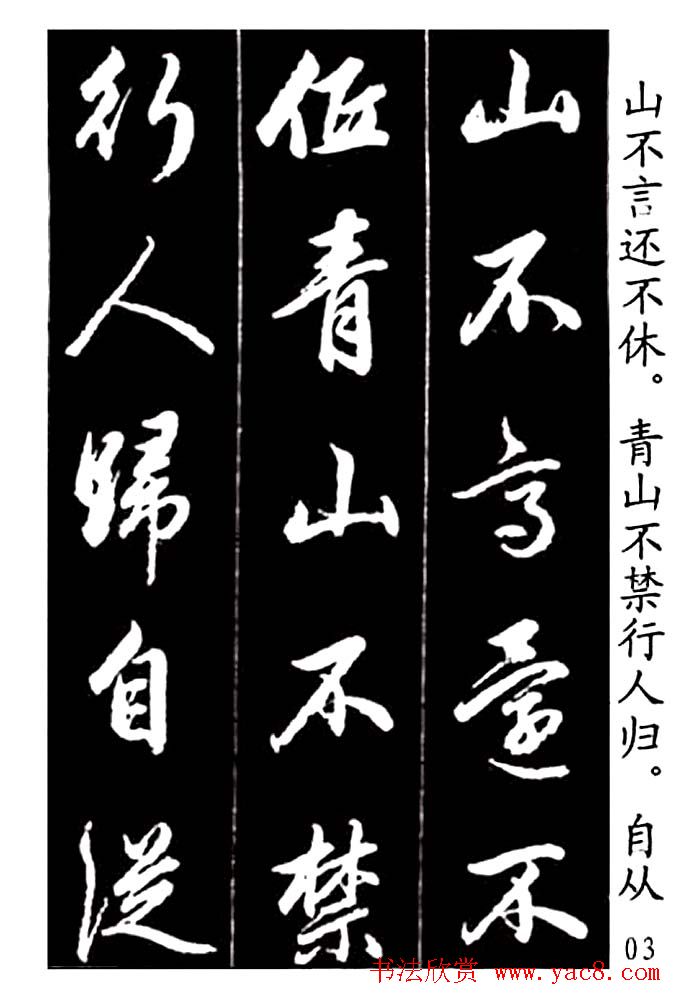 山不高還不
低青山不禁
行人歸自從
山不言还不休。青山不禁行人归。自从
03
书法欣赏 www.yac8.com